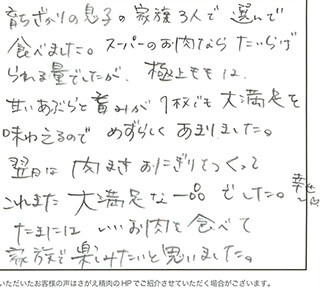 育ちざかりの息子の家族3人で選んで
食べました。スーパーのお肉なら たいらげ
られる量でしたが、極上ももは、
甘いあぶらと旨みが1枚でも大満足を
味わえるので めずらしく あまりました。
翌日は 肉まきおにぎりをつくって
これまた 大満足な一品 でした。幸せ〜
たまには いいお肉を食べて
家族で楽しみたいと思いました。
いただいたお客様の声はさがえ精肉のHPでご紹介させていただく場合がございます。